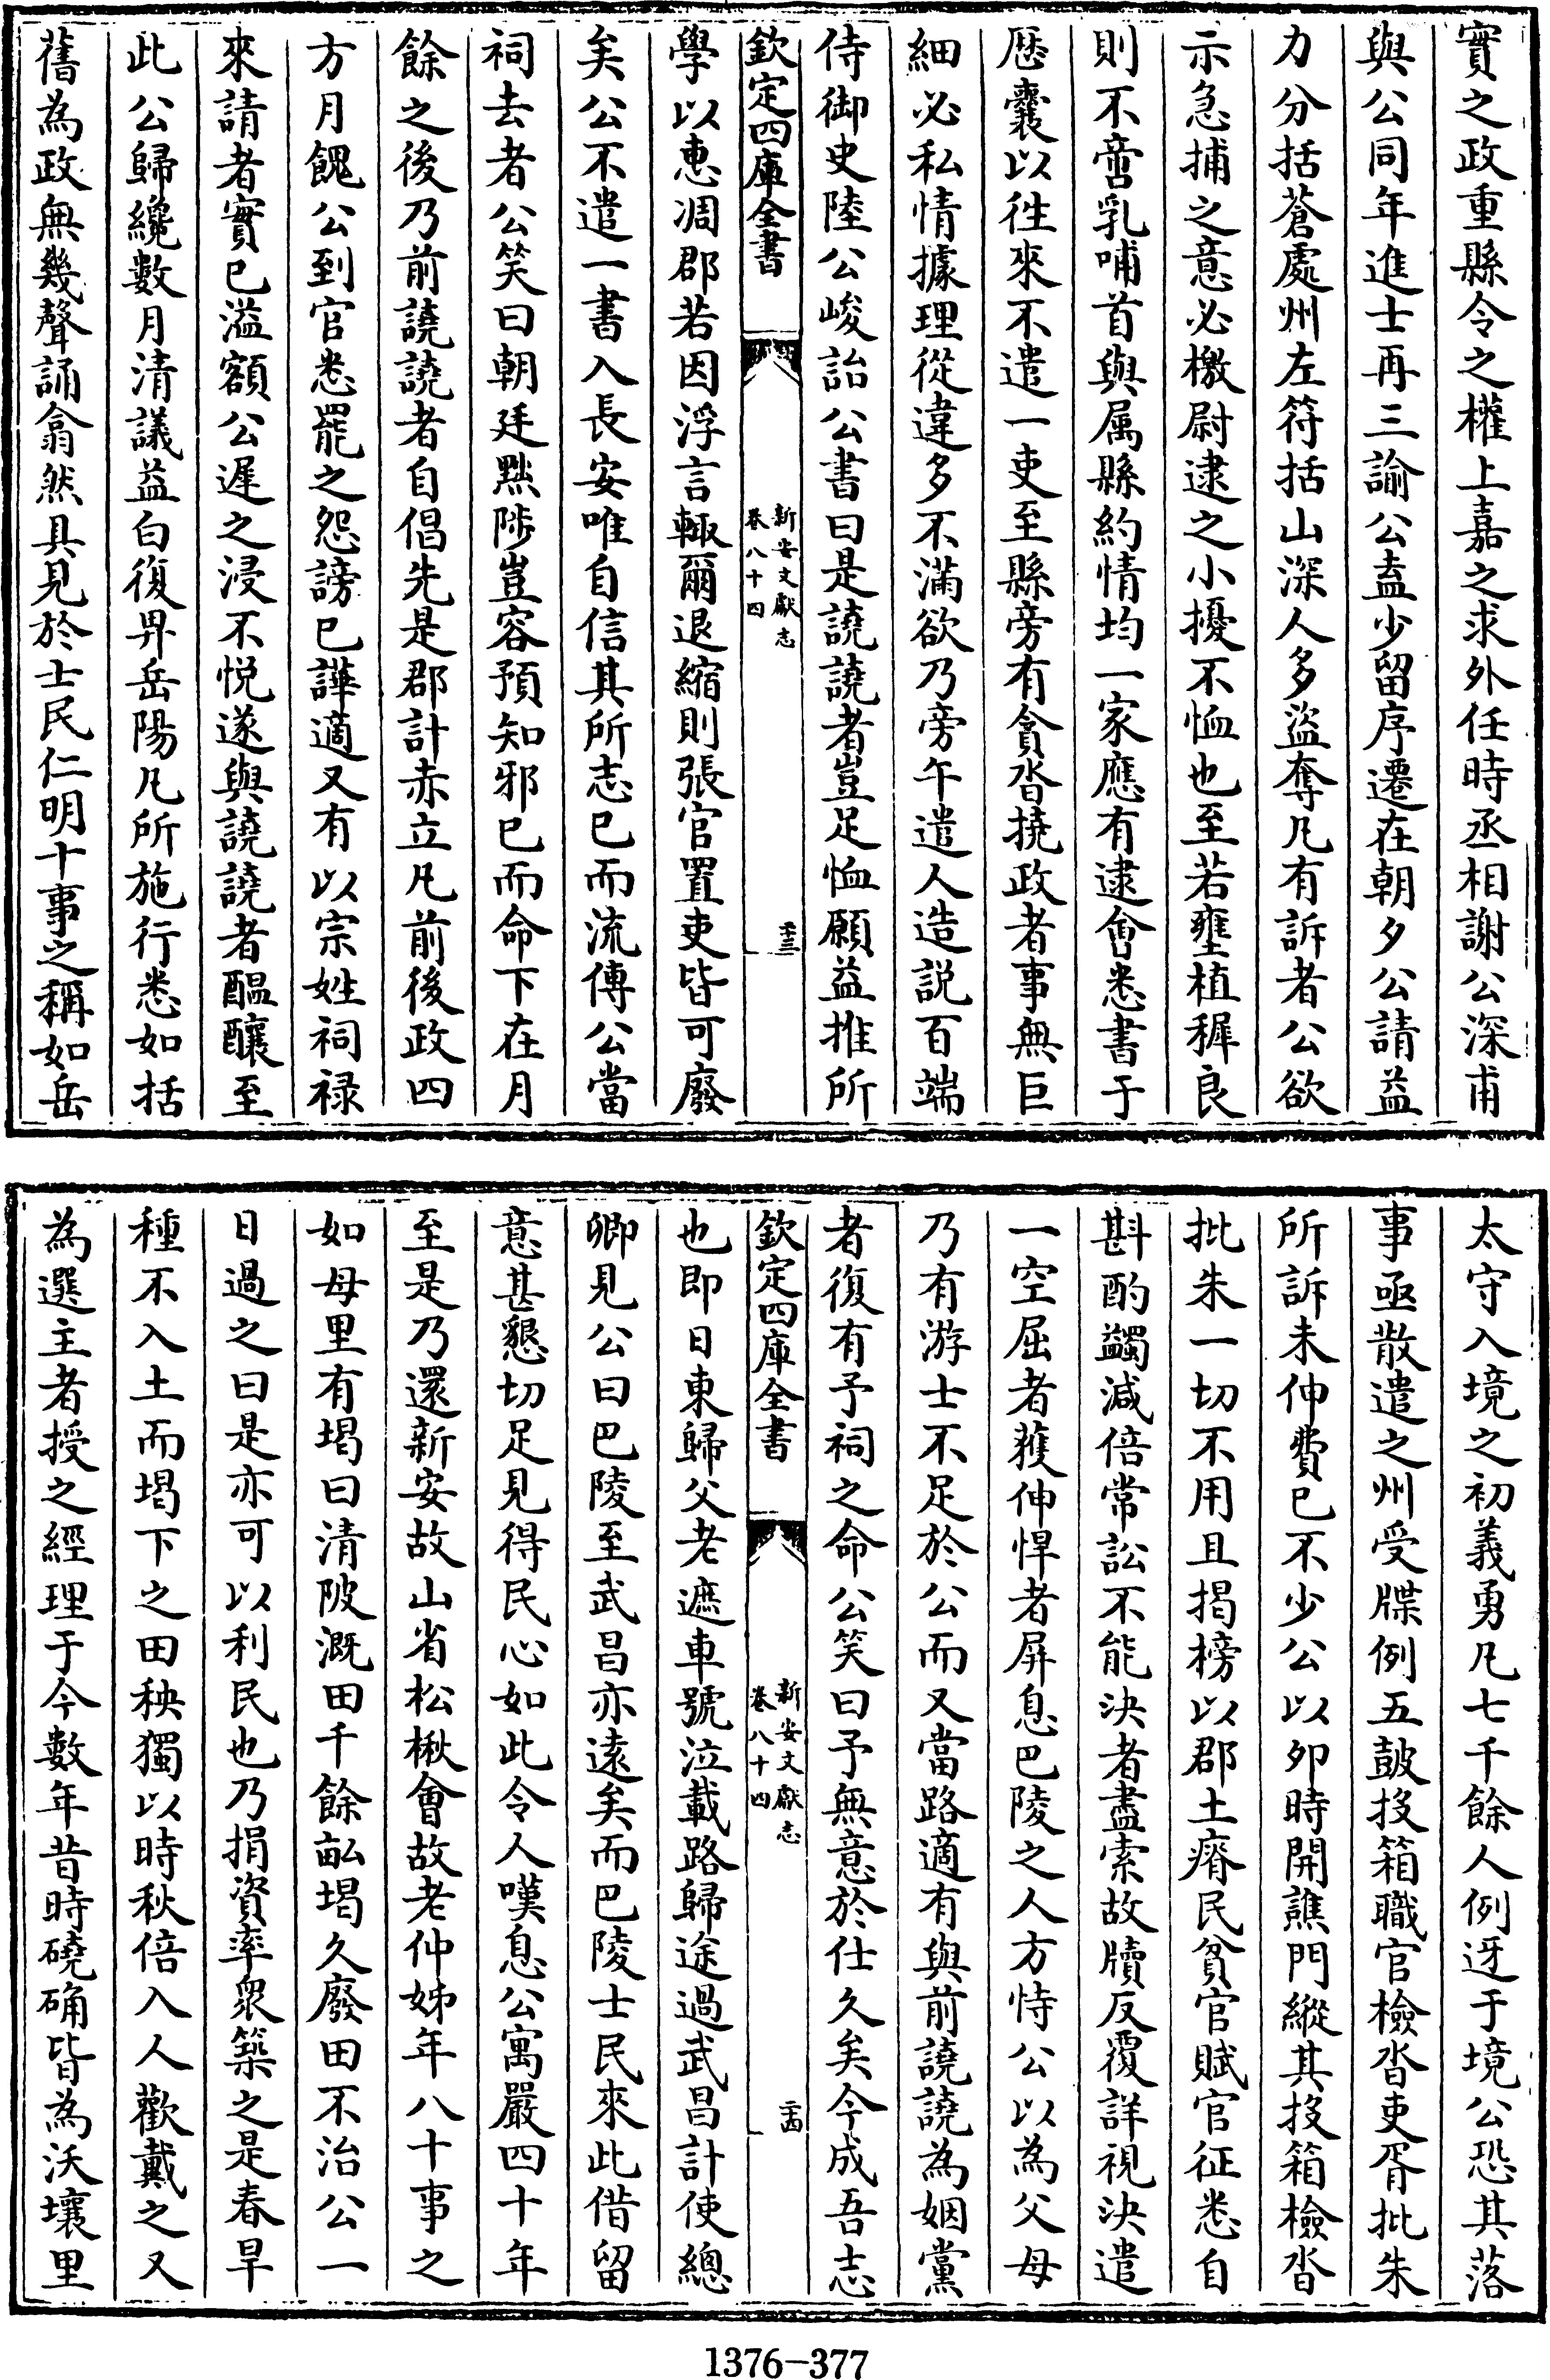 實之政重縣令之權上嘉之求外任時丞相謝公深甫
與公同年進士再三諭公盍少留序遷在朝夕公請益
力分括蒼處州左符括山深人多盜奪凡有訴者公欲
示急捕之意必檄尉逮之小擾不恤也至若壅植穉良
則不啻乳哺首與属縣約情均一家應有逮會悉書于
歴囊以徃來不遣一吏至縣旁有貪沓撓政者事無巨
細必私情據理從違多不滿欲乃旁午遣人造説百端
侍御史陸公峻詒公書曰是譊譊者豈足恤願益推所
欽定四庫全書
新安文獻志
卷八十四
二十三
學以惠凋郡若因浮言輙爾退縮則張官置吏皆可廢
矣公不遣一書入長安唯自信其所志已而流傳公當
祠去者公笑曰朝廷黜陟豈容預知邪已而命下在月
餘之後乃前譊譊者自倡先是郡計赤立凡前後政四
方月餽公到官悉罷之怨謗已譁適又有以宗姓祠禄
來請者實已溢額公遲之浸不悦遂與譊譊者醖釀至
此公歸纔數月清議益白復畀岳陽凡所施行悉如括
舊為政無幾聲誦翕然具見於士民仁明十事之稱如岳
太守入境之初義勇凡七千餘人例迓于境公恐其落
事亟散遣之州受牒例五皷投箱職官檢沓吏胥批朱
所訴未伸費已不少公以夘時開譙門縱其投箱檢沓
批朱一切不用且揭榜以郡土瘠民貧官賦官征悉自
斟酌蠲減倍常訟不能決者盡索故牘反覆詳視決遣
一空屈者獲伸悍者屏息巴陵之人方恃公以為父母
乃有游士不足於公而又當路適有與前譊譊為姻黨
者復有予祠之命公笑曰予無意於仕久矣今成吾志
欽定四庫全書
新安文獻志
卷八十四
二十四
也即日東歸父老遮車號泣載路歸途過武昌計使總
卿見公曰巴陵至武昌亦遠矣而巴陵士民來此借留
意甚懇切足見得民心如此令人嘆息公寓嚴四十年
至是乃還新安故山省松楸會故老仲姊年八十事之
如母里有堨曰清陂溉田千餘畝堨久廢田不治公一
日過之曰是亦可以利民也乃捐資率衆築之是春旱
種不入土而堨下之田秧獨以時秋倍入人歡戴之又
為選主者授之經理于今數年昔時磽确皆為沃壤里
1376-377